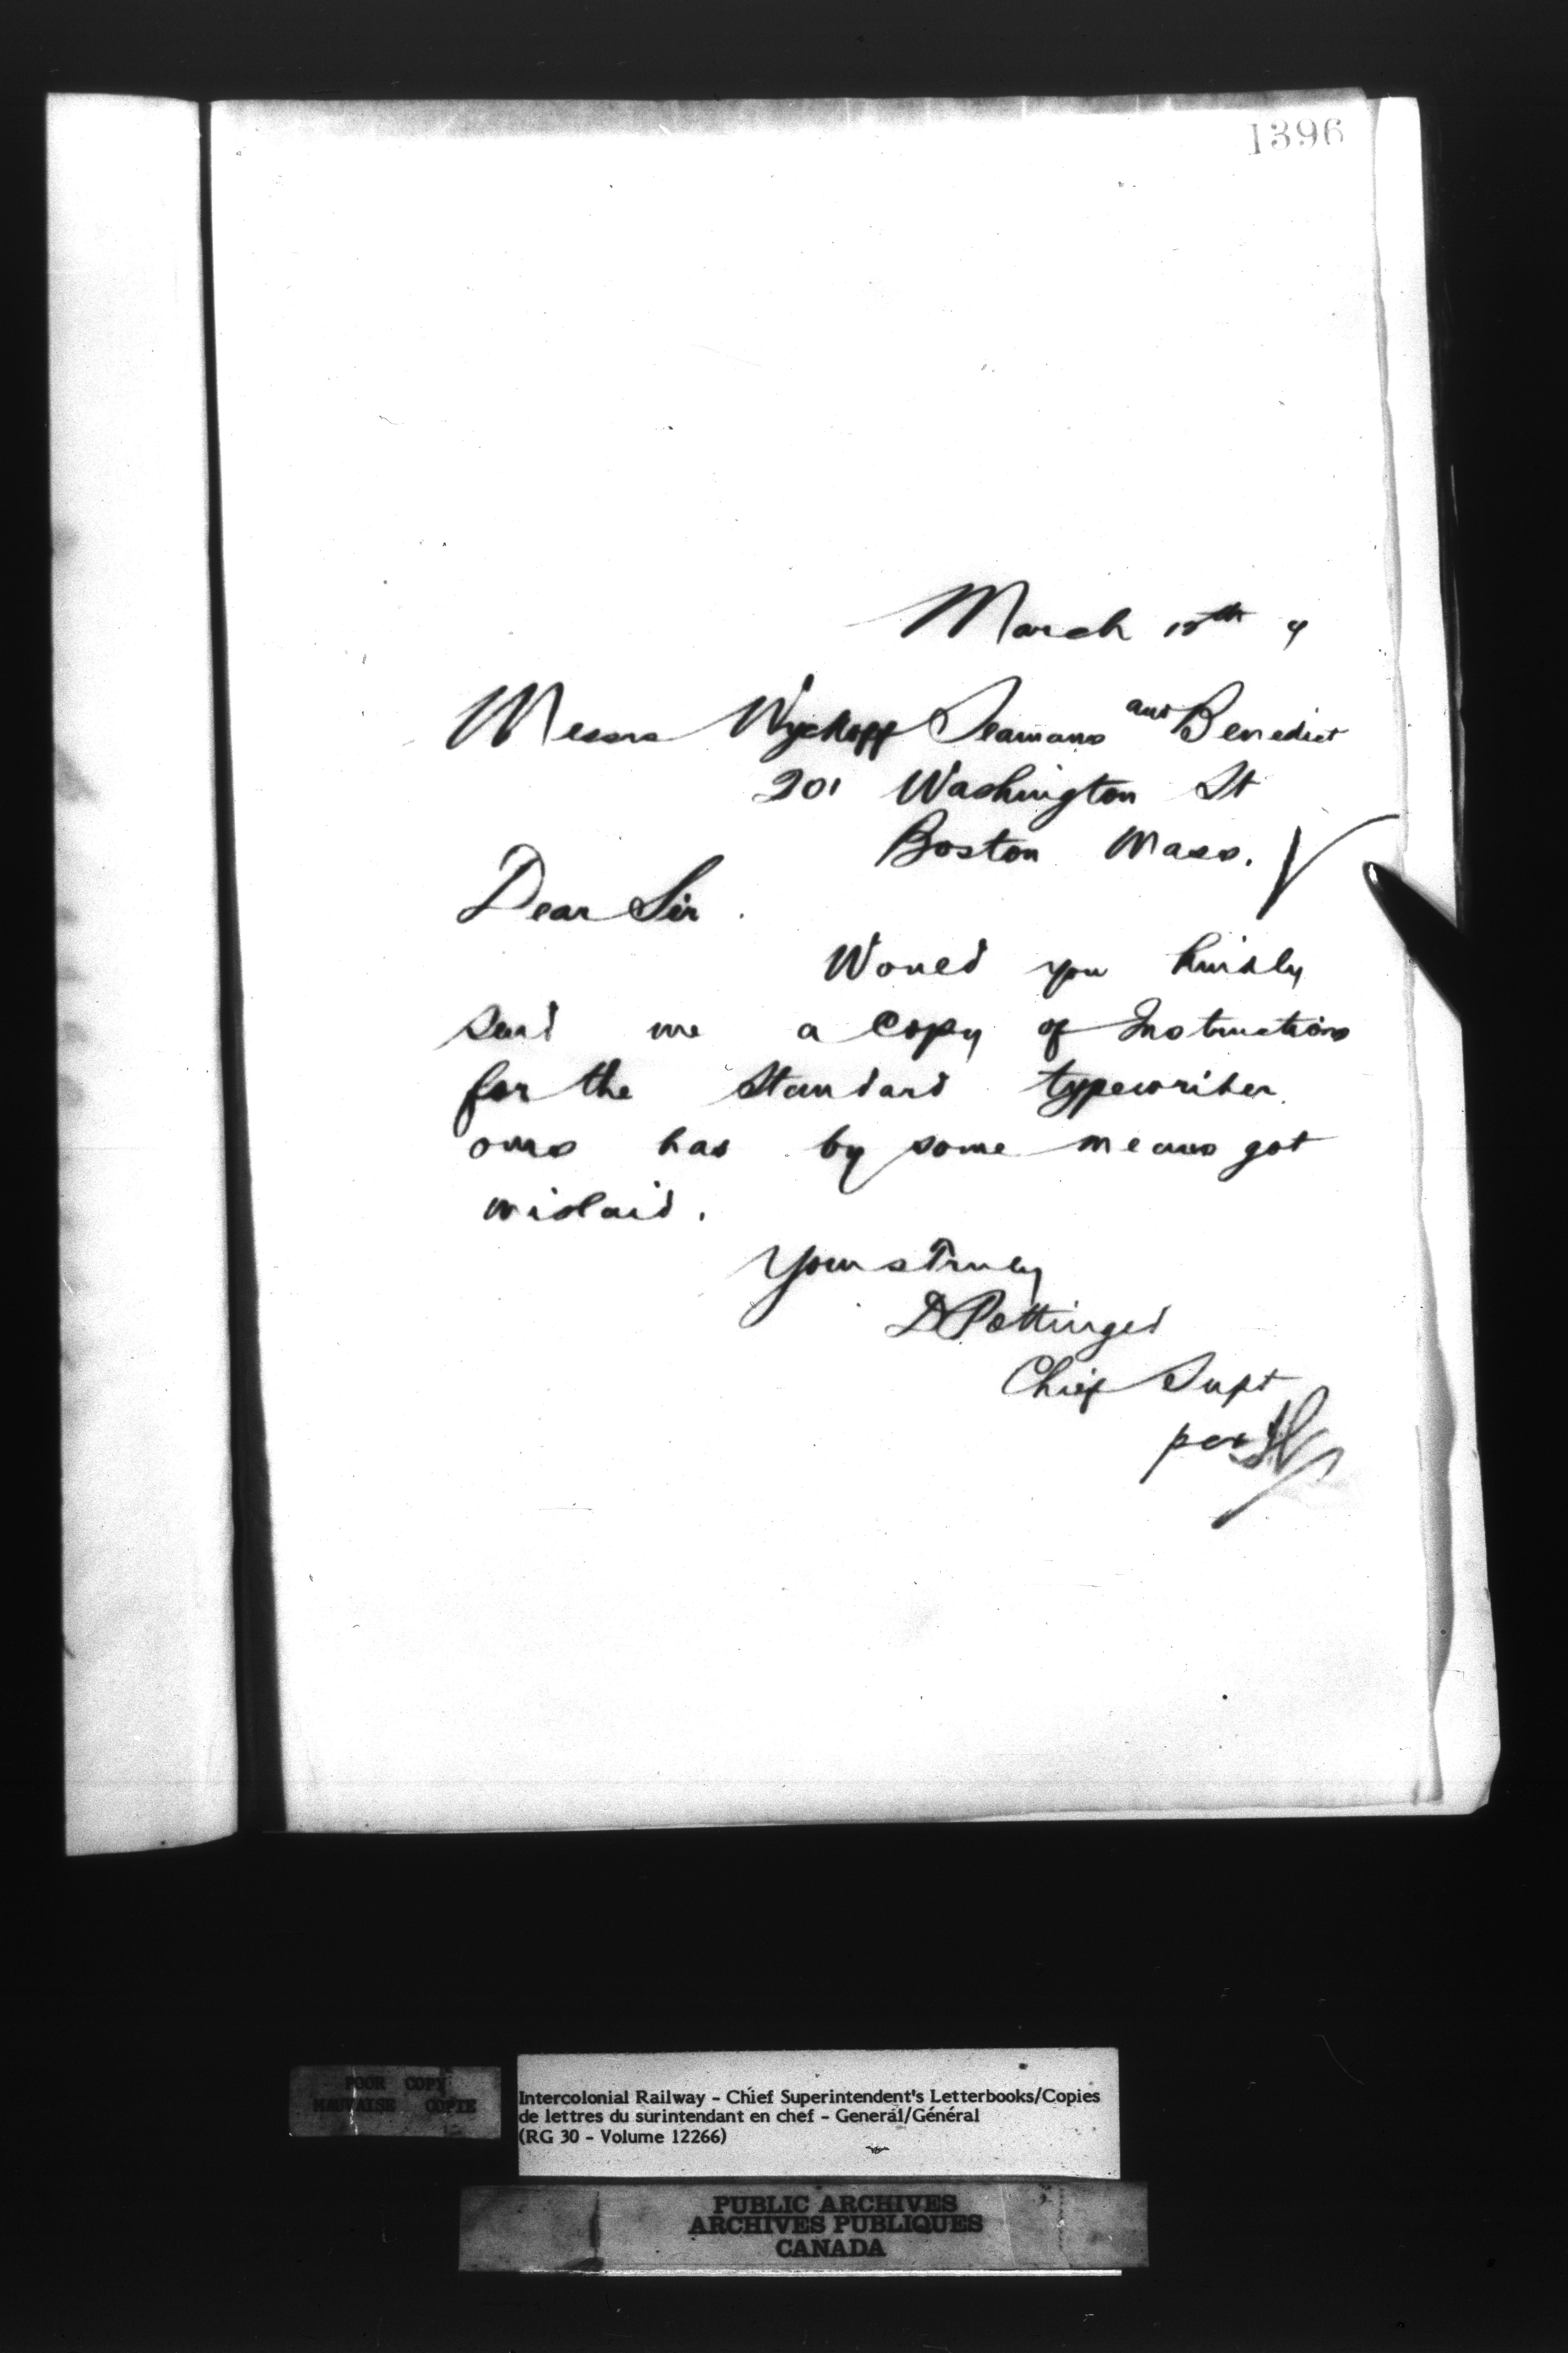 1396
March 18th 9
Messrs Wyckoff Seamans and Benedict
201 Washington St
Boston Mass.
Dear Sir.
Would you kindly
send me a copy of Instructions
for the Standard typewriter.
ours has by some means got
mislaid.
Yours Truly
D Pottinger
Chief Supt
per
POOR COPY
MAUVAISE COPIE
Intercolonial Railway - Chief Superintendent's Letterbooks/Copies
de lettres du surintendant en chef - General/Général
(RG 30 - Volume 12266)
PUBLIC ARCHIVES
ARCHIVES PUBLIQUES
CANADA